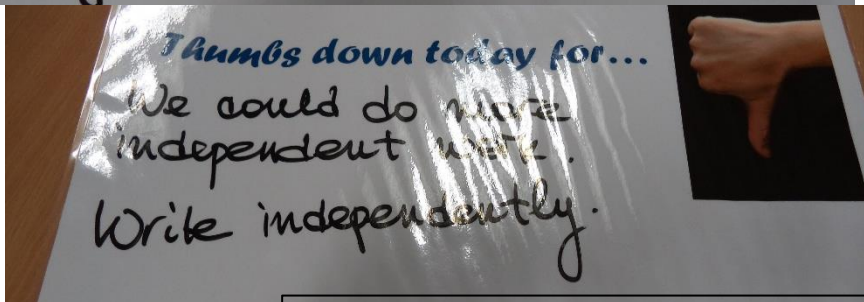 Thumbs down today for...
We could do more
independent work.
Write independently.